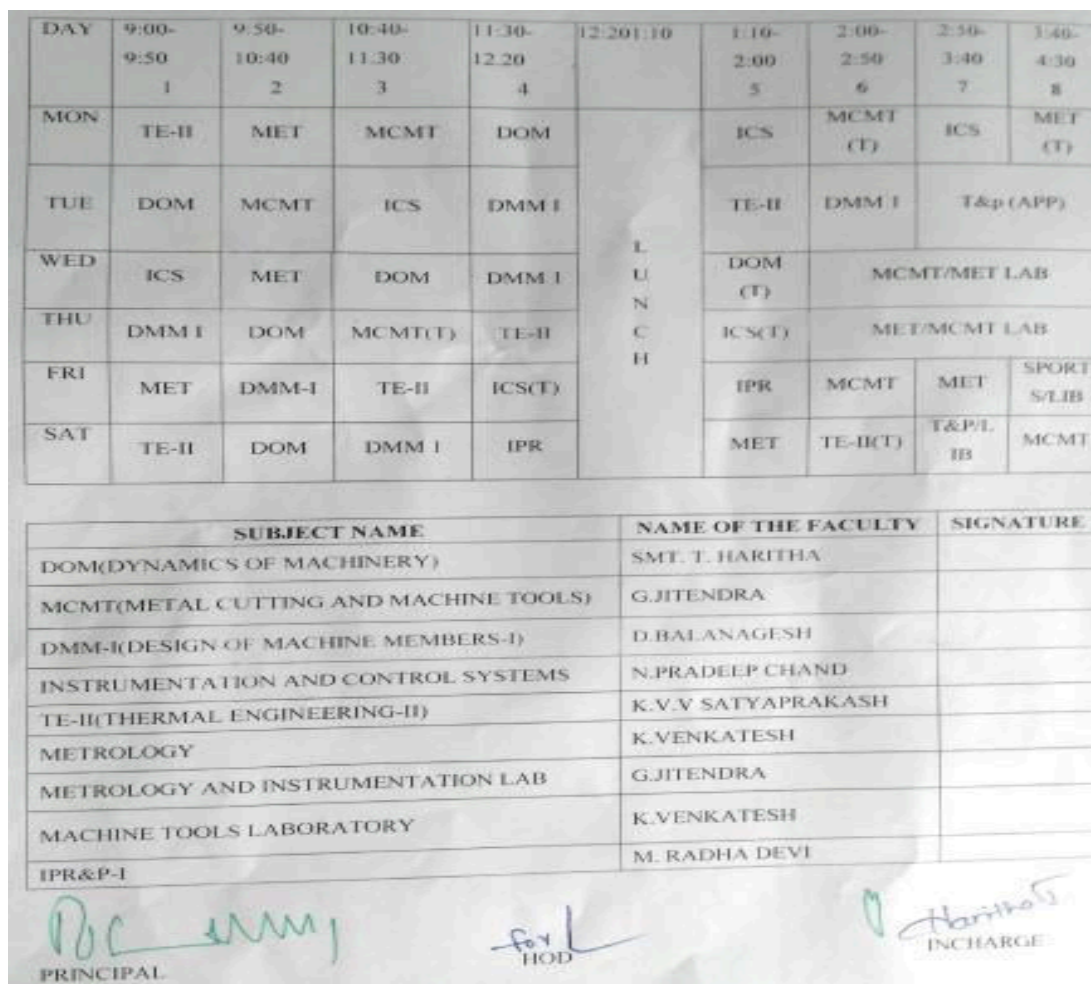 DAY 9:00- 9:50- 10:40- 11:30- 12:201:10 1:10- 2:00- 2:50- 3:40-
9:50 10:40 11.30 12.20 2:00 2:50 3:40 4:30
1 2 3 4 5 6 7 8
MON TE-II MET MCMT DOM ICS MCMT (T) ICS MET (T)
TUE DOM MCMT ICS DMM I TE-II DMM I T&p (APP)
WED ICS MET DOM DMM I DOM (T) MCMT/MET LAB
THU DMM I DOM MCMT(T) TE-II ICS(T) MET/MCMT LAB
FRI MET DMM-I TE-II ICS(T) IPR MCMT MET SPORT S/LIB
SAT TE-II DOM DMM I IPR MET TE-II(T) T&P/L IB MCMT
L
U
N
C
H
SUBJECT NAME NAME OF THE FACULTY SIGNATURE
DOM(DYNAMICS OF MACHINERY) SMT. T. HARITHA
MCMT(METAL CUTTING AND MACHINE TOOLS) G.JITENDRA
DMM-I(DESIGN OF MACHINE MEMBERS-I) D.BALANAGESH
INSTRUMENTATION AND CONTROL SYSTEMS N.PRADEEP CHAND
TE-II(THERMAL ENGINEERING-II) K.V.V SATYAPRAKASH
METROLOGY K.VENKATESH
METROLOGY AND INSTRUMENTATION LAB G.JITENDRA
MACHINE TOOLS LABORATORY K.VENKATESH
IPR&P-I M. RADHA DEVI
for
Haritha
PRINCIPAL HOD INCHARGE